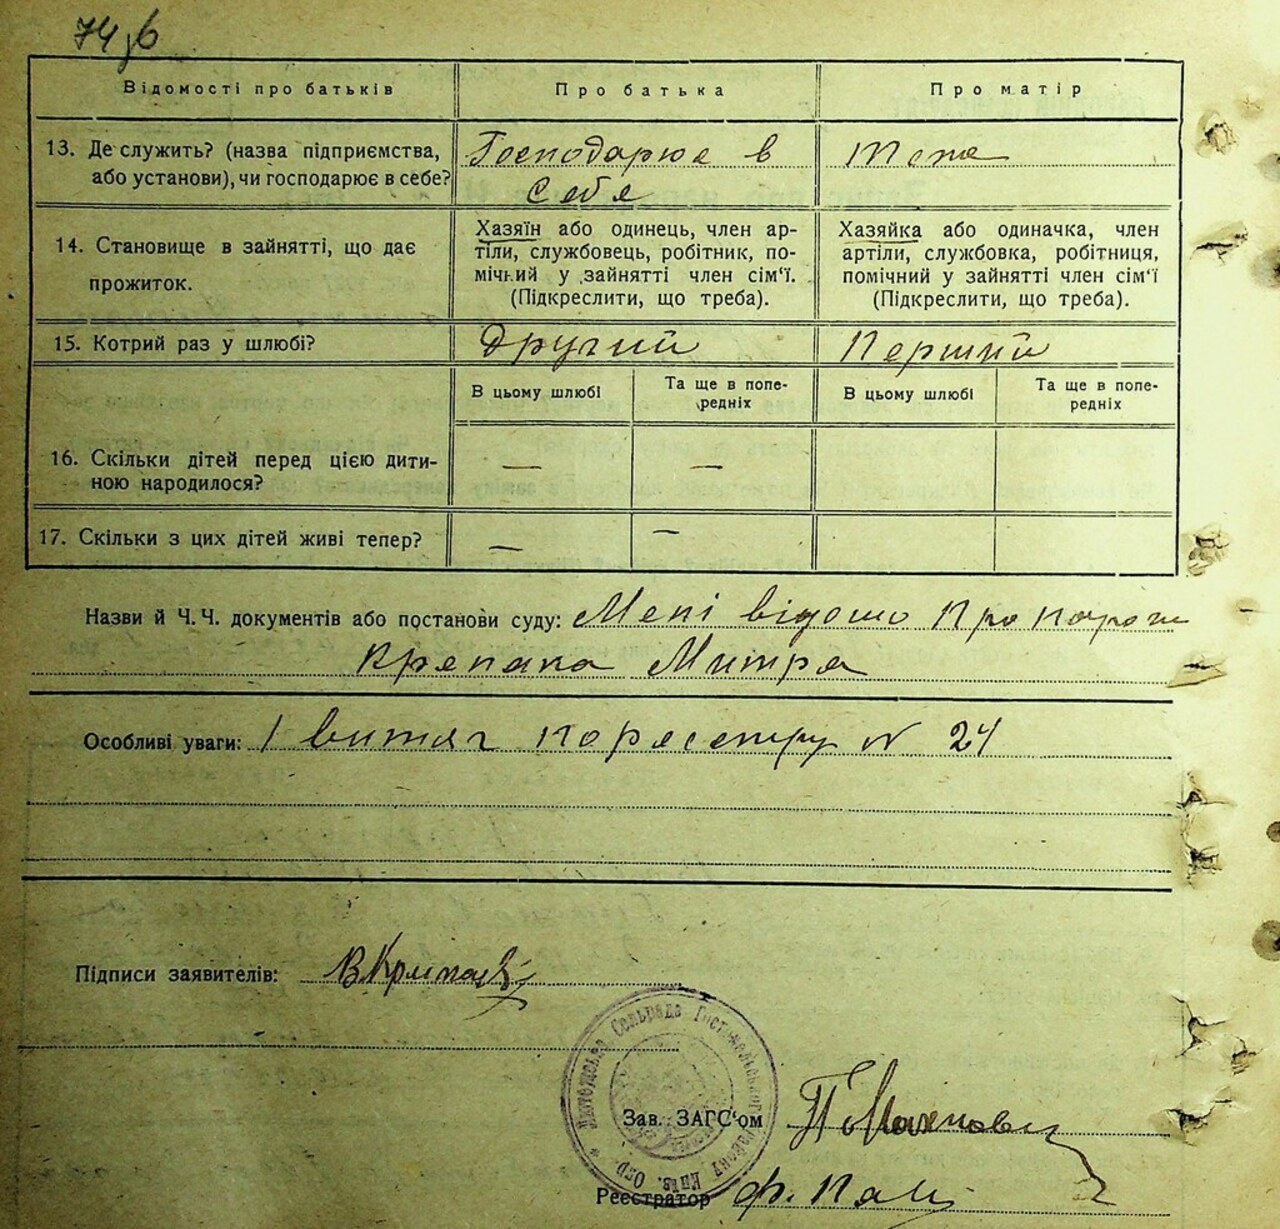 74 зб
Відомості про батьків
Про батька
Про матір
13. Де служить? (назва підприємства,
або установи), чи господарює в себе?
Господарює в
себе
теже
14. Становище в зайнятті, що дає
прожиток.
Хазяїн або одинець, член ар-
тіли, службовець, робітник, по-
мічний у зайнятті член сім'ї.
(Підкреслити, що треба).
Хазяйка або одиначка, член
артіли, службовка, робітниця,
помічний у зайнятті член сім'ї
(Підкреслити, що треба).
15. Котрий раз у шлюбі?
Другий
Перший
В цьому шлюбі
Та ще в попе-
редніх
В цьому шлюбі
Та ще в попе-
редніх
16. Скільки дітей перед цією дити-
ною народилося?
—
—
17. Скільки з цих дітей живі тепер?
—
—
Назви й Ч.Ч. документів або постанови суду: Мені відомо про
Митра
Особливі уваги: 1 витяг по реєстру N 24
Підписи заявителів:
Сельрада Гостомельського району Київ. Окр.
Зав. ЗАГС'ом
Реєстратор